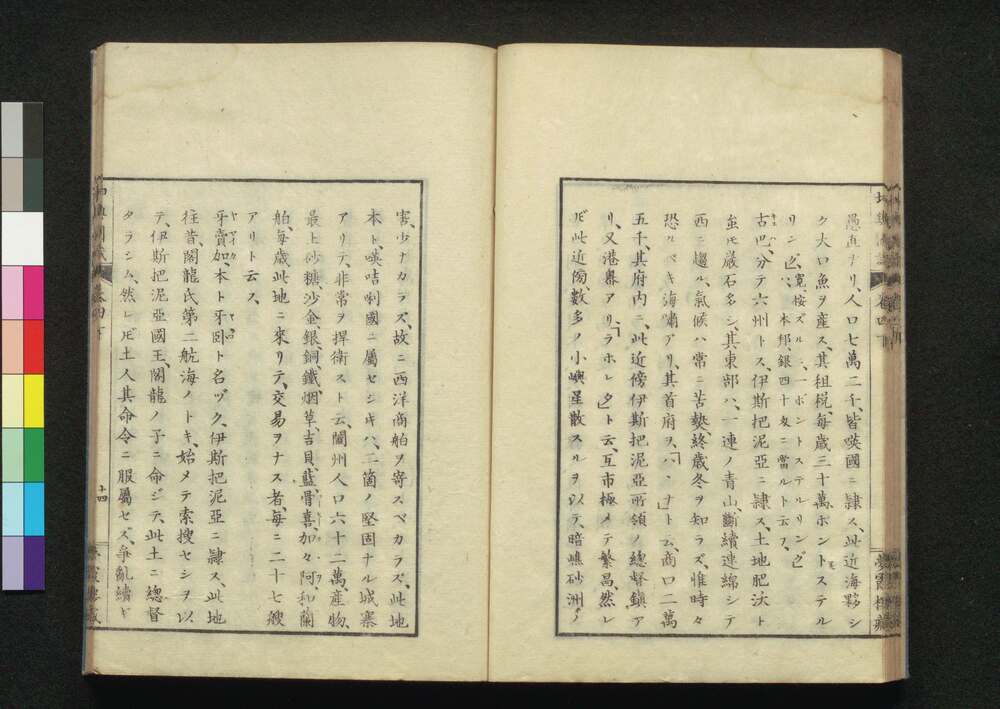 愚直ナリ、人口七萬二千、皆暎國ニ隷ス、此近海夥シ
ク大口魚ヲ産ス、其租税、毎歳三十萬ホンドステル
リン、寛按ズルニ、一ポントステルリングハ、本邦、銀四十匁ニ當ルト云フ、
古巴、分テ六州トス、伊斯把泥亞ニ隷ス、土地肥沃ト
並モ巖石多シ、其東部ハ、一連ノ青山、斷續連綿シテ
西ニ趨ル、氣候ハ常ニ苦熱、終歳冬ヲ知ラズ、惟時々
恐ルベキ海嘯アリ、其首府ヲ、ハハナトト云、商口二萬
五千、其府内ニ、此近傍伊斯把泥亞所領ノ總督鎮ア
リ、又港最アリ、ラホレタト云、互市極メテ繁昌、然レ
𪜈此近傍、數多ノ小嶼星散スルヲ以テ、暗礁砂洲ノ
害、少ナカラズ、故ニ西洋商舶ヲ寄スベカラズ、此地
本ト、暎咭唎國ニ屬セシキハ、二箇ノ堅固ナル城寨
アリテ、非常ヲ捍衛スト云、闔州人口六十二萬、産物、
最上砂糖、沙金、銀、銅鐵、烟草、吉貝、藍、骨喜、加々阿、和蘭
舶、毎歳此地ニ來リテ、交易ヲナス者、毎ニ二十七艘
アリト云ス、
牙賣加、本ト牙卧ト名ヅク、伊斯把泥亞ニ隷ス、此地
往昔、閣龍氏第二航海ノトキ、始メテ索搜セシヲ以
テ、伊斯把泥亞國王、閣龍ノ子ニ命ジテ、此土ニ總督
タラシム、然レ𪜈土人其命令ニ服屬セズ、爭亂續ギ
十四